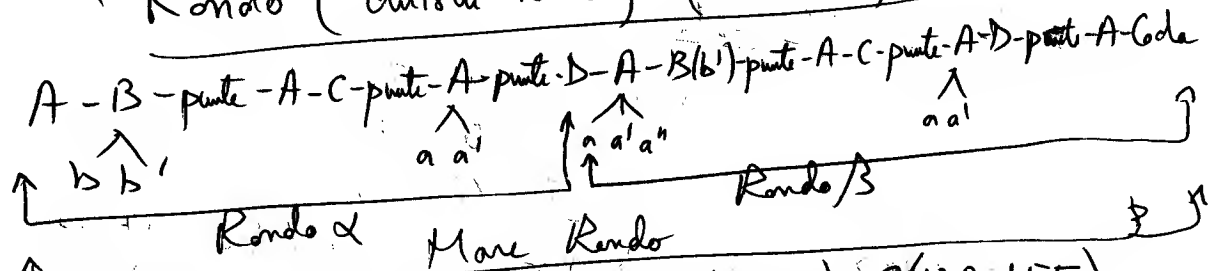 Rondo (
A - B - punte - A - C - punte - A - punte - D - A - B(b') - punte - A - C - punte - A - D - punte - A - Coda
b b' a a' a a' a" a a'
Rondo α Rondo β
Mare Rondo